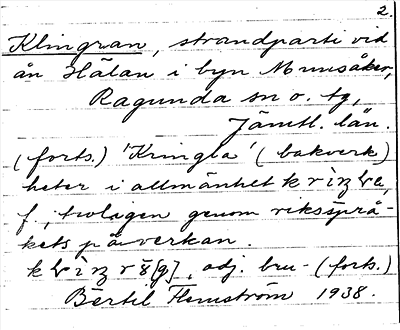 2.
Klingran, strandparti vid
ån Hälan i byn Munsåker,
Ragunda sn o. tg,
Jämtl. län.
(forts.) 'Kringla' (bakverk)
heter i allmänhet
f, troligen genom rikssprå-
kets påverkan.
adj. bru- (forts.)
Bertil Flemström 1938.